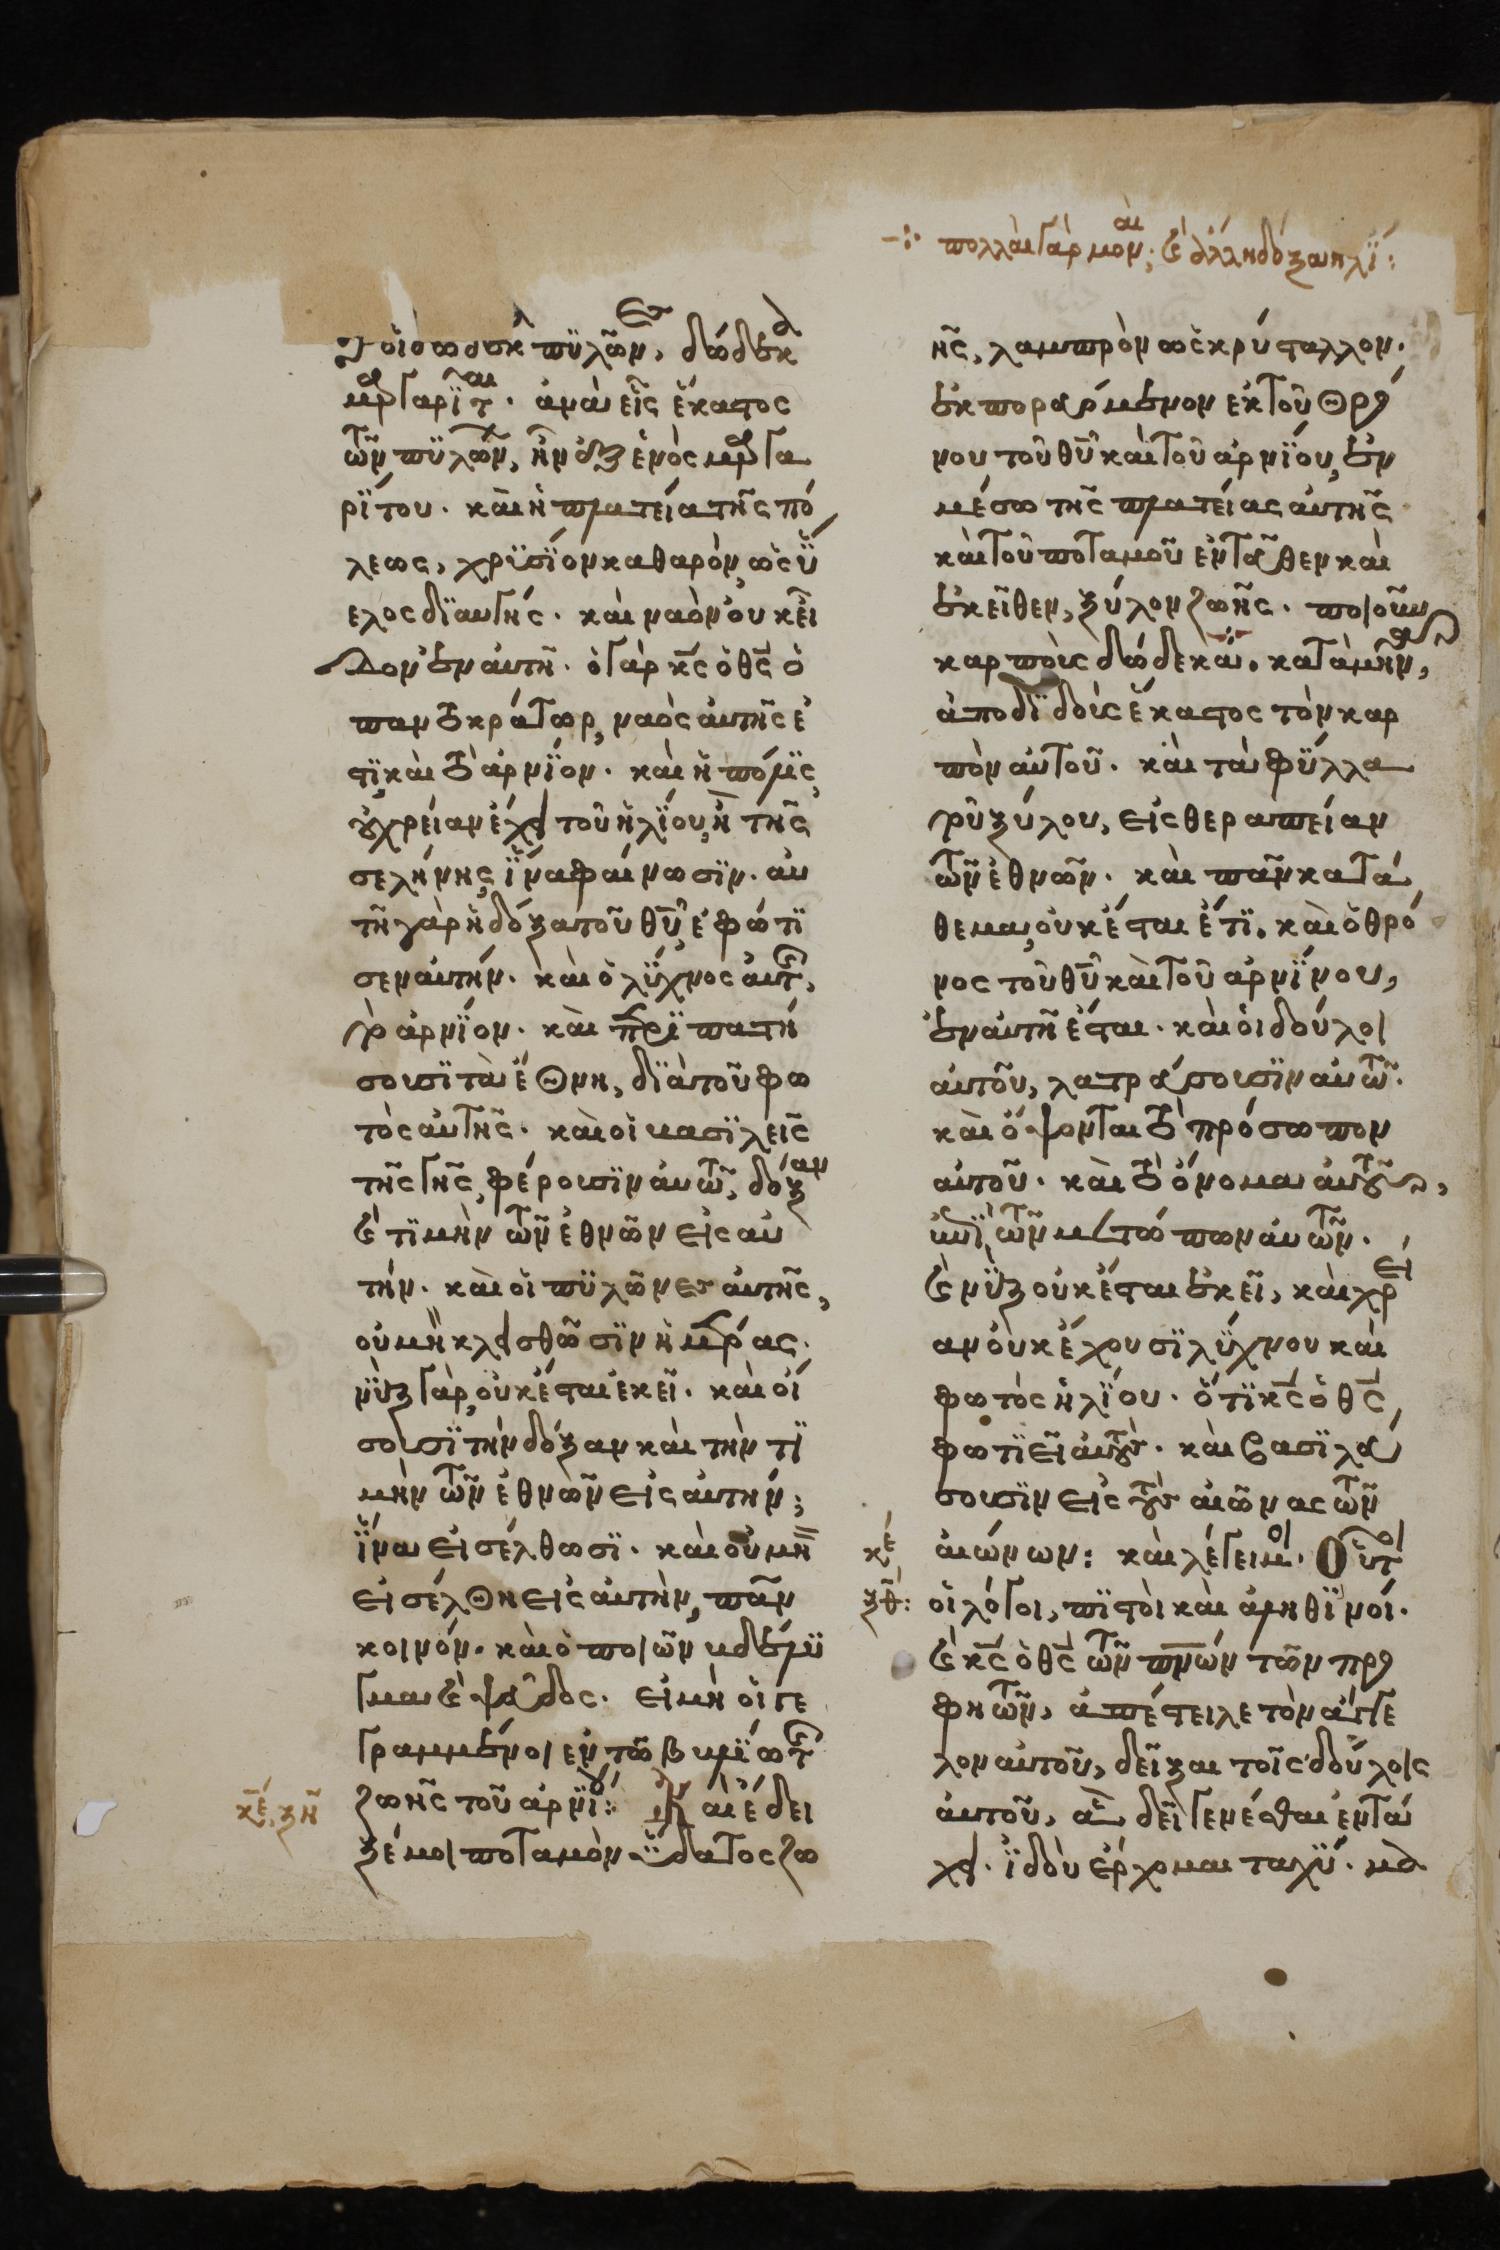 πολλαὶ γὰρ μοναὶ· καὶ ἄλλη δόξα ἡλί:
καὶ οἱ δώδεκα πϋλῶνες, δώδεκα
μαργαρϊται. ἀνὰ εἷς ἕκαστος
τῶν πϋλώνων, ἦν ἐξ ἑνὸς μαργα
ρϊτου. καὶ ἡ πλατεία τῆς πό
λεως, χρϋσϊον καθαρὸν, ὡς ὕ
ελος δϊαυγής. καὶ ναὸν οὐκ εἶ
δον ἐν αὐτῇ. ὁ γὰρ κς ὁ θς ὁ
παντοκράτωρ, ναὸς αὐτῆς ἐ
στϊ, καὶ τὸ ἀρνϊον. καὶ ἡ πόλϊς,
οὐ χρείαν ἔχει τοῦ ἡλϊου, ἢ τῆς
σελήνης, ἵνα φαίνωσϊν. αὐ
τῇ γὰρ ἡ δόξα τοῦ θυ, ἐφώτϊ
σεν αὐτήν. καὶ ὁ λϋχνος αὐτῆς,
τὸ ἀρνϊον. καὶ περϊπατή
σουσϊ τὰ ἔθνη, δϊὰ τοῦ φω
τὸς αὐτῆς. καὶ οἱ βασϊλεῖς
τῆς γῆς, φέρουσϊν αὐτῶ, δόξαν
καὶ τϊμὴν τῶν ἐθνῶν εἰς αὐ
τήν. καὶ οἱ πϋλῶνες αὐτῆς,
οὐ μὴ κλεισθῶσϊν ἡμέρας.
νὺξ γὰρ, οὐκ ἔσται ἐκεῖ. καὶ οἴ
σουσϊ τὴν δόξαν καὶ τὴν τϊ
μὴν τῶν ἐθνῶν εἰς αὐτήν;
ἵνα εἰσέλθωσϊ. καὶ οὐ μὴ
εἰσέλθη εἰς αὐτὴν, πᾶν
κοινόν. καὶ ὁ ποιῶν βδέλϋ
γμα καὶ ψεῦδος. εἰ μὴ οἱ γε
γραμμένοι ἐν τῶ βιβλϊω τῆς
ζωῆς τοῦ ἀρνϊου: Καὶ ἔδει
κε, ξη
ξέ μοι ποταμὸν ὕδατος ζω
ῆς, λαμπρὸν ὡς κρύσταλλον.
ἐκπορευόμενον ἐκ τοῦ θρό
νου τοῦ θυ καὶ τοῦ ἀρνϊου, ἐν
μέσω τῆς πλατείας αὐτῆς
καὶ τοῦ ποταμοῦ ἐντεῦθεν καὶ
ἐκεῖθεν, ξύλον ζωῆς. ποιοῦν
καρποὺς δώδεκα. κατὰ μῆνα,
ἀποδϊδοὺς ἕκαστος τὸν καρ
πὸν αὐτοῦ. καὶ τὰ φϋλλα
τοῦ ξύλου, εἰς θεραπείαν
τῶν ἐθνῶν. καὶ πᾶν κατά
θεμα, οὐκ ἔσται ἔτϊ. καὶ ὁ θρό
νος τοῦ θυ καὶ τοῦ ἀρνϊου,
ἐν αὐτῇ ἔσται. καὶ οἱ δοῦλοι
αὐτοῦ, λατρεύσουσϊν αὐτῶ.
καὶ ὄψονται τὸ πρόσωπον
αὐτοῦ. καὶ τὸ ὄνομα αὐτοῦ,
ἐπὶ τῶν μετώπων αὐτῶν.
καὶ νὺξ οὐκ ἔσται ἐκεῖ, καὶ χρεί
αν οὐκ ἔχουσϊ λϋχνου καὶ
φωτὸς ἡλϊου. ὅτϊ κς ὁ θς,
φωτϊεῖ αὐτούς. καὶ βασϊλεύ
σουσϊν εἰς τοὺς αἰῶνας τῶν
αἰώνων: καὶ λέγει μοι. Οὗτοι
κε
ξθ:
οἱ λόγοι, πϊστοὶ καὶ ἀληθϊνοί.
καὶ κς ὁ θς τῶν πνων τῶν προ
φητῶν, ἀπέστειλε τὸν ἄγγε
λον αὐτοῦ, δεῖξαι τοῖς δούλοις
αὐτοῦ, ἃ δεῖ γενέσθαι ἐν τά
χει. ἰδοὺ ἔρχομαι ταχϋ. μα